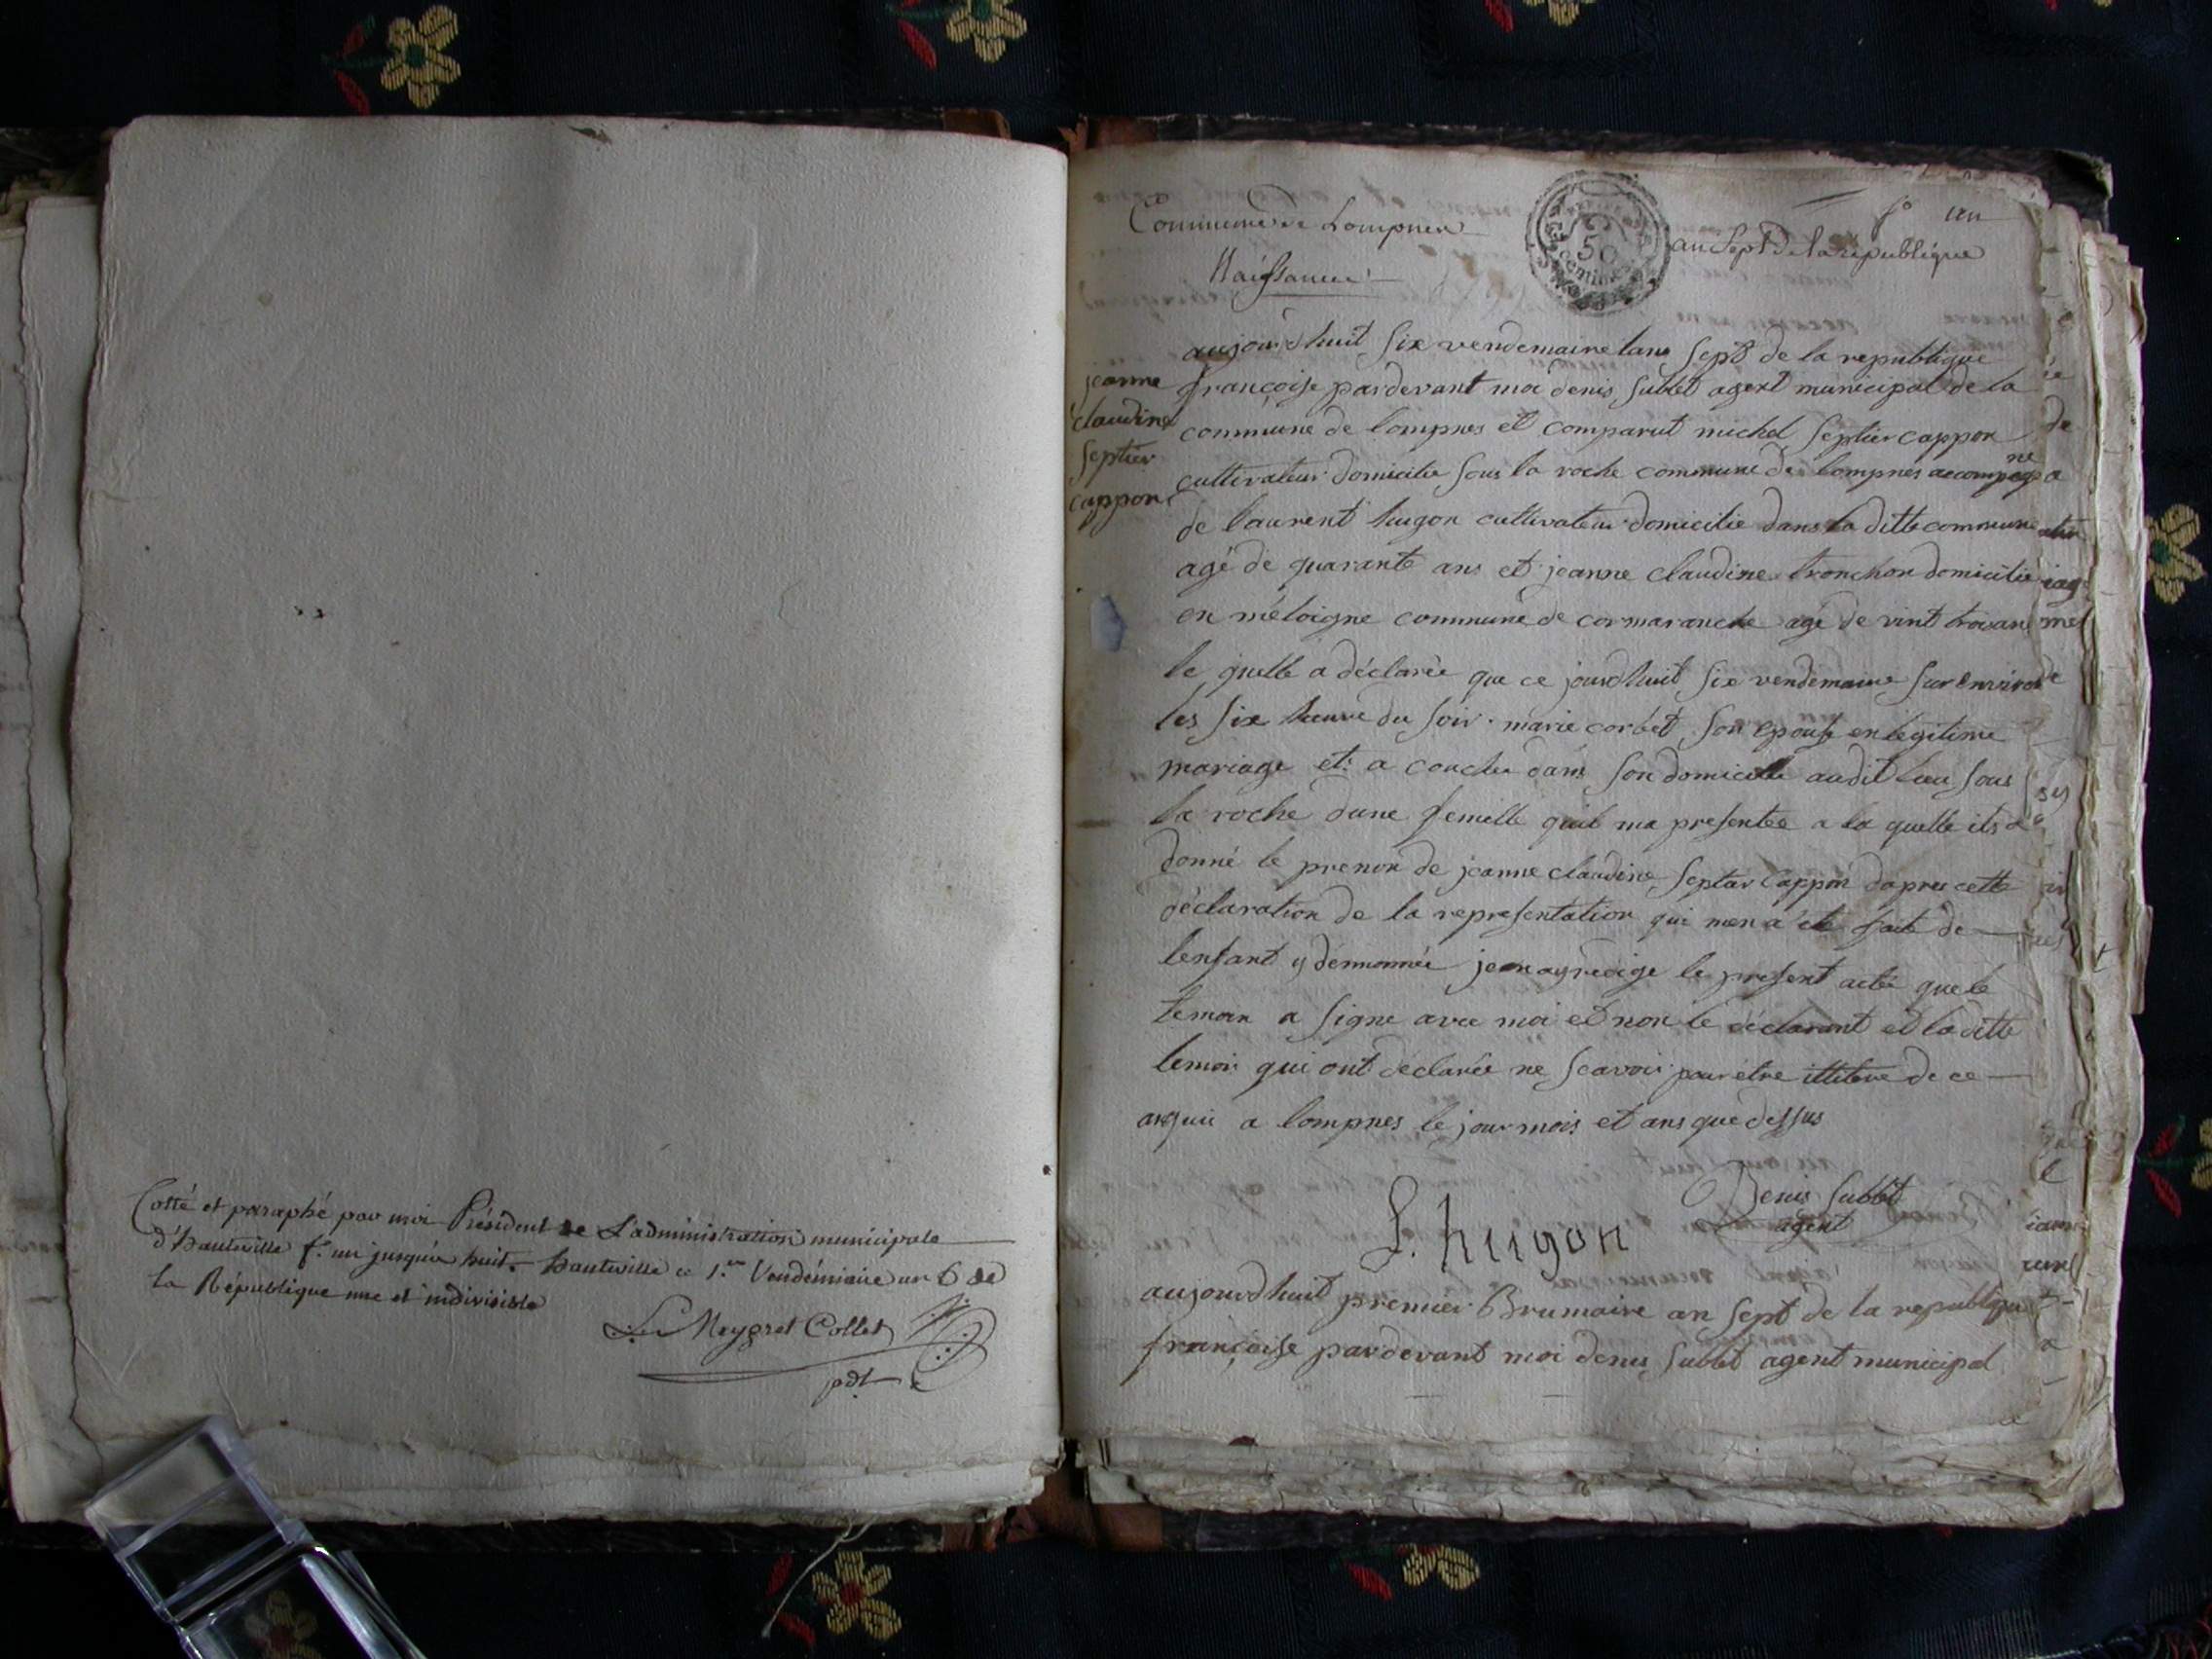 Cotté et paraphé par moi Président de L'administration municipale
d'hauteville f.° un jusqu'a huit. hauteville ce 1.er Vendémiaire an 6 de
la République une et indivisible
Meygret Collet
pdt
Commune de Lompnes
f° un
an Sept de la republique
Naissance
50
jeanne
claudine
septier
cappon
aujourdhuit six vendemaire lans sept de la republique
françoise pardevant moi denis sublet agent municipal de la
commune de lompnes et comparut michel septier cappon
cultivateur domicilie sous la roche commune de lompnes accompagne
de laurent hugon cultivateur domicilie dans la ditte commune
agé de quarante ans et jeanne claudine tronchon domicilie
en méloigne commune de cormaranche agé de vint trois ans
le quelle a déclarée que ce jourdhuit six vendemaire sur environ
les six heure du soir marie corbet son epouse en legitime
mariage et a couche dans son domicille audit lieu sous
la roche dune femelle quil ma presentee a la quelle ils a
donné le prenon de jeanne claudine septier cappon dapres cette
déclaration de la representation qui men a éte faite de
lenfant y dennomée jen ay redige le present acte que le
temoin a signe avec moi et non le déclarant et la ditte
temoin qui ont déclarée ne scavoir pour étre illitere de ce
a lompnes le jour mois et ans que dessus
Denis Sublet
agent
L. hugon
aujourdhuit premier Brumaire an sept de la republique
françoise pardevant moi denis sublet agent municipal